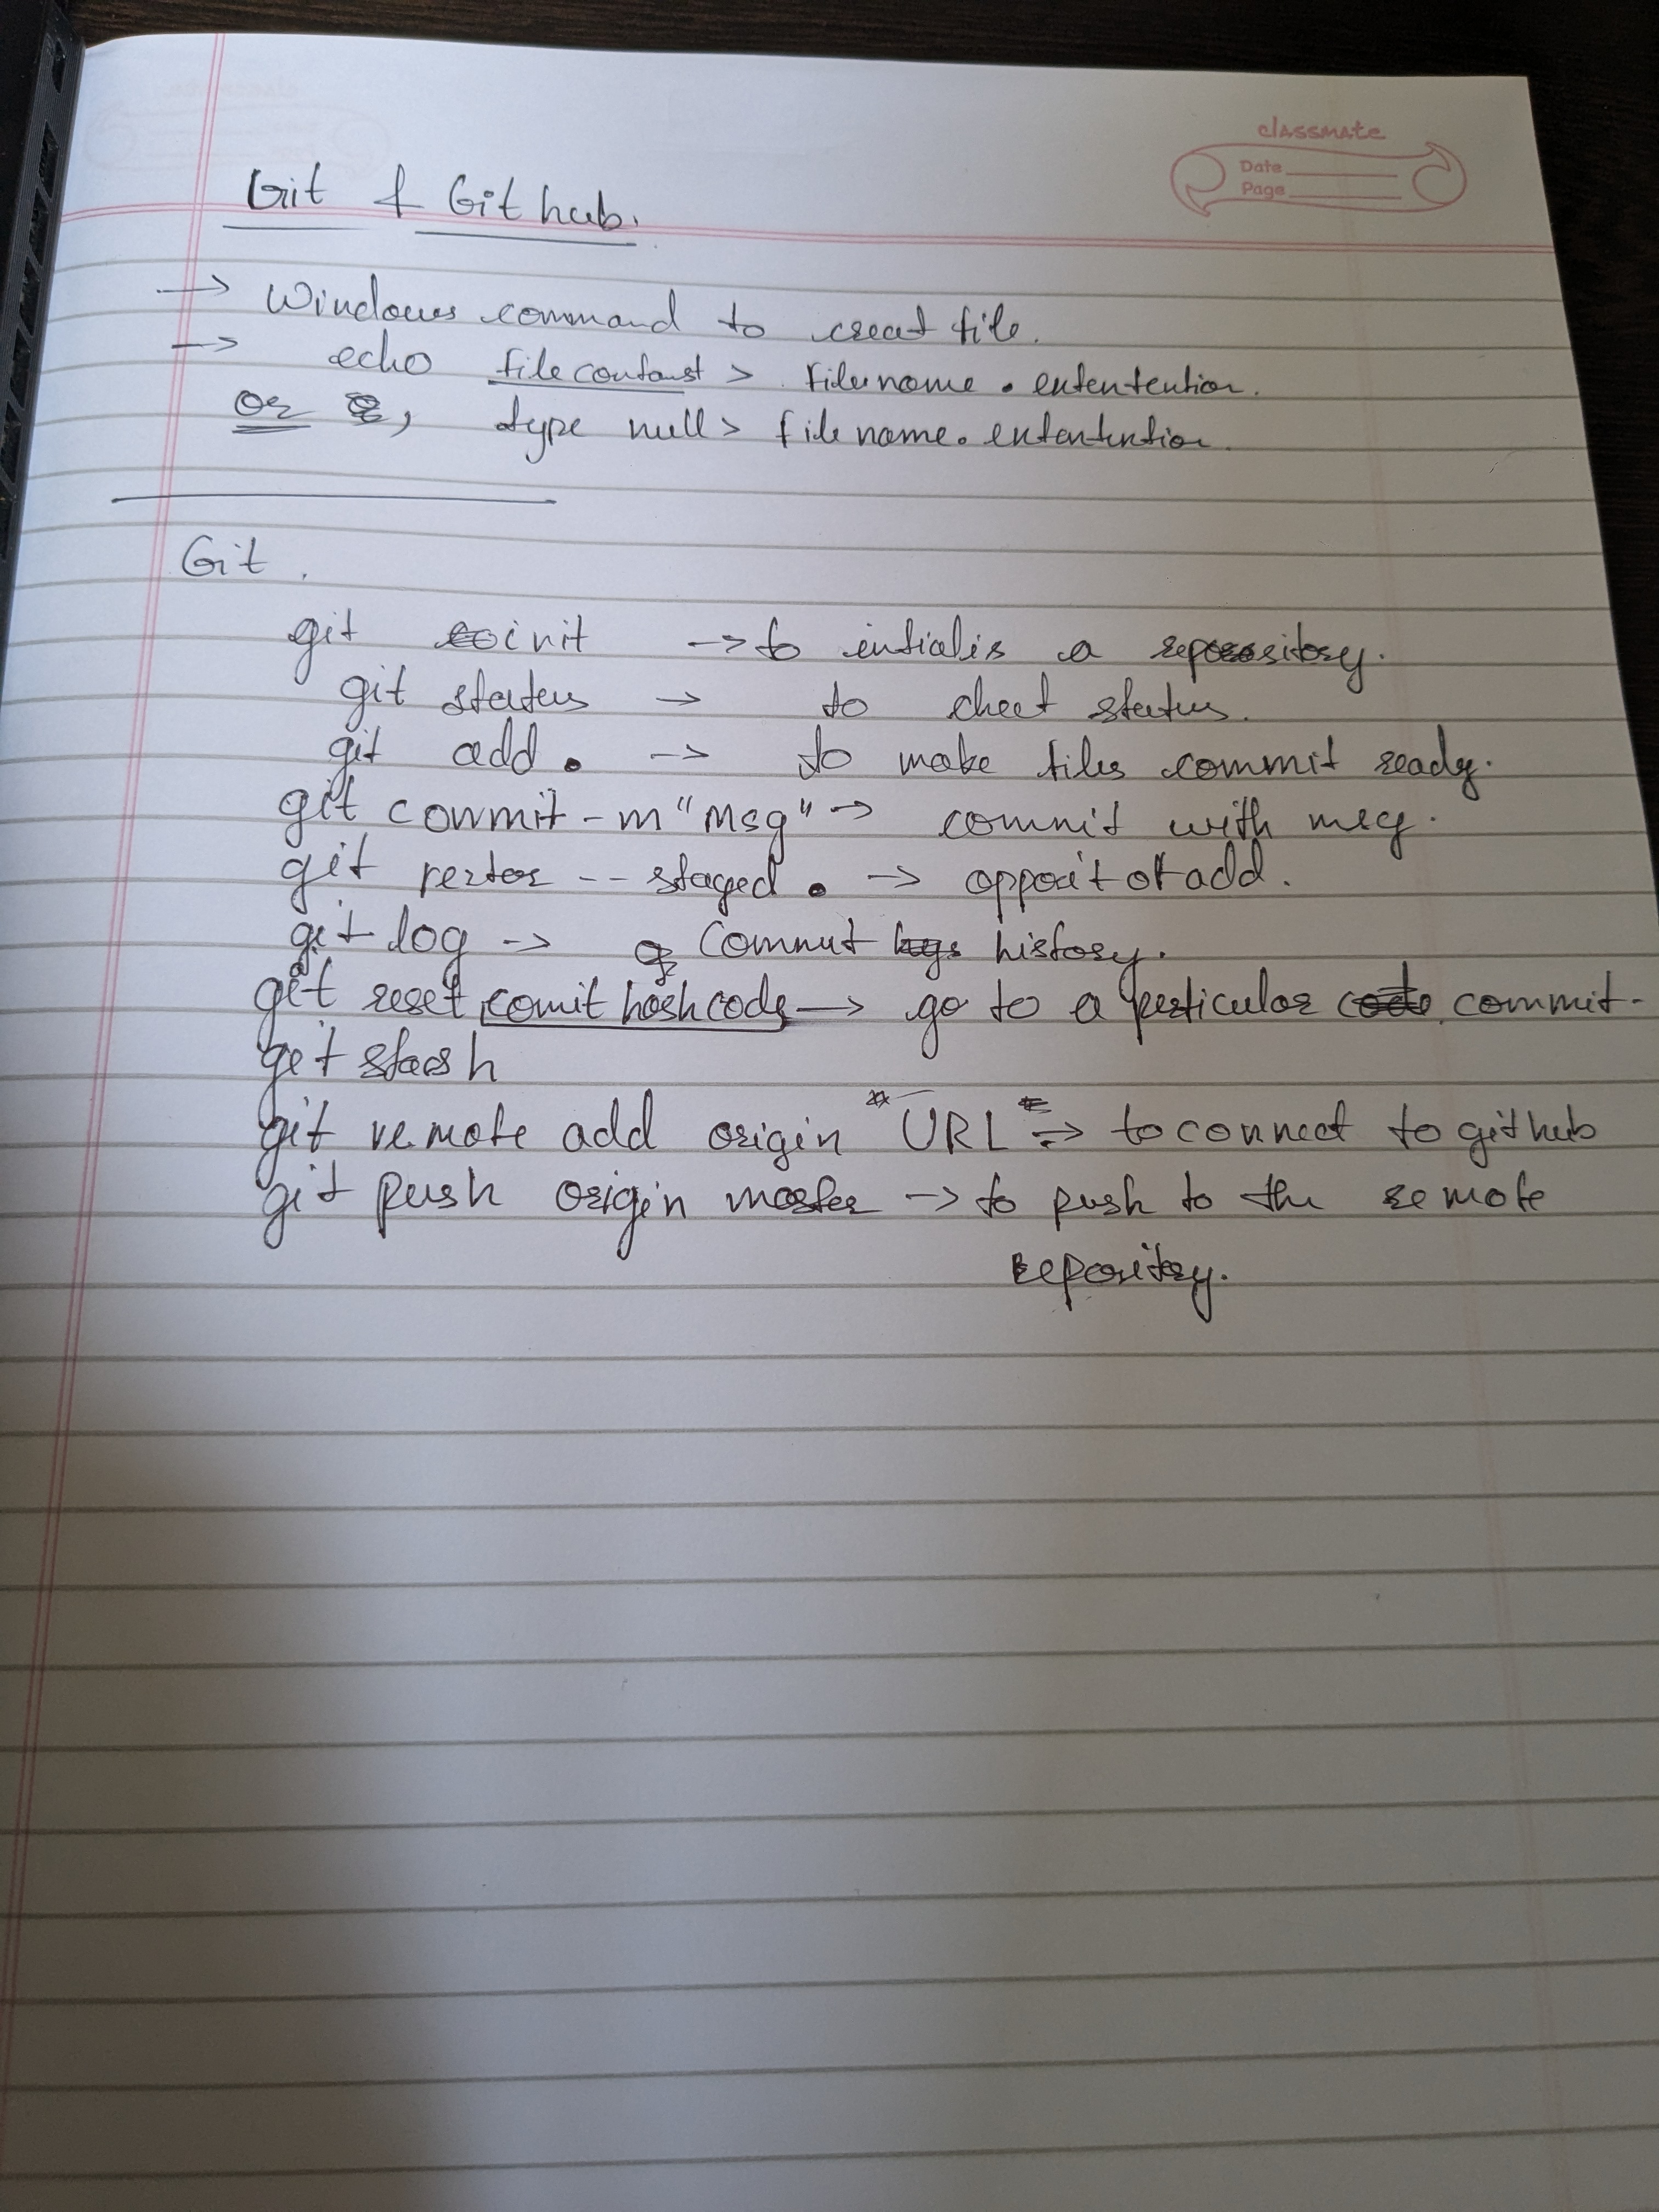 classmate
Date
Page
Git & Git hub.
→ Windows command to creat file.
→ echo file contanst > filename . extentention.
or , type null > file name. extentention.
Git .
git init → to intialis a repository.
git status → to chect status.
git add . → to make files commit ready.
git commit - m "Msg" → commit with msg.
git restor -- staged . → opposit of add.
git log → Commit history.
git reset comit hash code → go to a perticular commit.
git stash
git remote add origin URL → to connect to github
git push origin master → to push to the remote
repository.